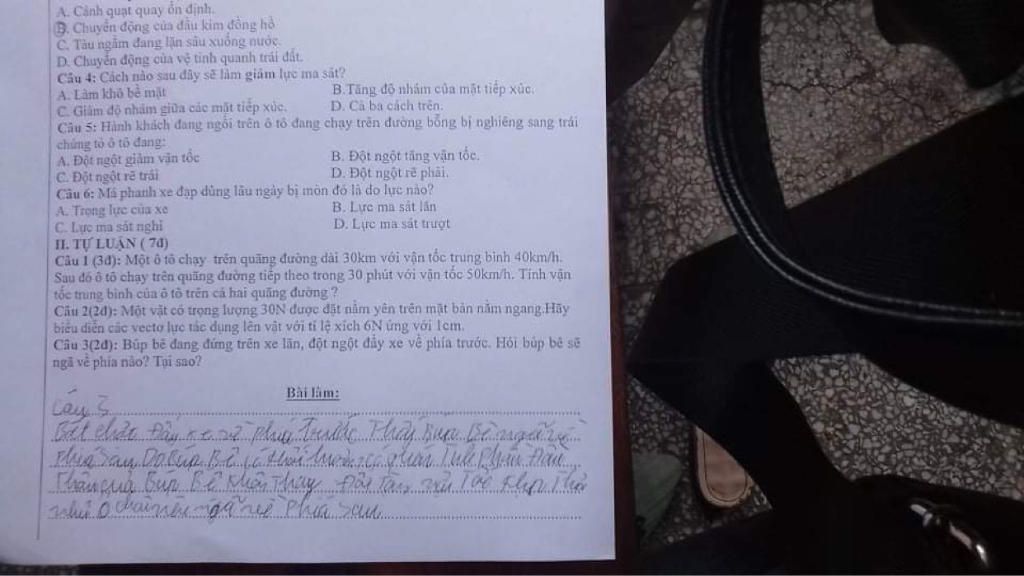 A. Cánh quạt quay ổn định.
B. Chuyển động của đầu kim đồng hồ
C. Tàu ngầm đang lặn sâu xuống nước.
D. Chuyển động của vệ tinh quanh trái đất.
Câu 4: Cách nào sau đây sẽ làm giảm lực ma sát?
A. Làm khô bề mặt
B.Tăng độ nhám của mặt tiếp xúc.
C. Giảm độ nhám giữa các mặt tiếp xúc.
D. Cả ba cách trên.
Câu 5: Hành khách đang ngồi trên ô tô đang chạy trên đường bỗng bị nghiêng sang trái
chứng tỏ ô tô đang:
A. Đột ngột giảm vận tốc
B. Đột ngột tăng vận tốc.
C. Đột ngột rẽ trái
D. Đột ngột rẽ phải.
Câu 6: Má phanh xe đạp dùng lâu ngày bị mòn đó là do lực nào?
A. Trọng lực của xe
B. Lực ma sát lăn
C. Lực ma sát nghỉ
D. Lực ma sát trượt
II. TỰ LUẬN ( 7đ)
Câu 1 (3đ): Một ô tô chạy trên quãng đường dài 30km với vận tốc trung bình 40km/h.
Sau đó ô tô chạy trên quãng đường tiếp theo trong 30 phút với vận tốc 50km/h. Tính vận
tốc trung bình của ô tô trên cả hai quãng đường ?
Câu 2(2đ): Một vật có trọng lượng 30N được đặt nằm yên trên mặt bàn nằm ngang.Hãy
biểu diễn các vectơ lực tác dụng lên vật với tỉ lệ xích 6N ứng với 1cm.
Câu 3(2đ): Búp bê đang đứng trên xe lăn, đột ngột đẩy xe về phía trước. Hỏi búp bê sẽ
ngã về phía nào? Tại sao?
Bài làm:
Câu 3
đẩy xe về phía trước Thấy Búp Bê ngã về
phía sau Do Búp Bê có quán Tính Phần Đầu
Thân của Búp Bê Không Thay Đổi
nên ngã về Phía Sau